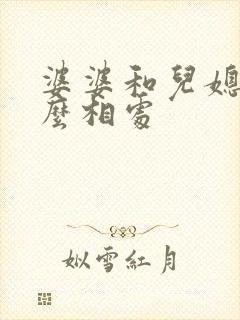 婆婆和兒媳
麼相處
姒雪紅月